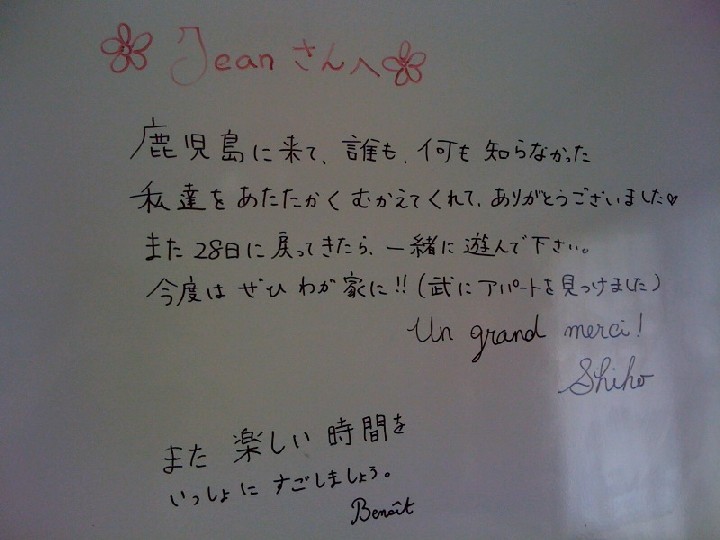 Jeanさんへ
鹿児島に来て、誰も、何も知らなかった
私達をあたたかくむかえてくれて、ありがとうございました♡
また28日に戻ってきたら、一緒に遊んで下さい。
今度はぜひわが家に!!(武にアパートを見つけました)
Un grand merci!
Shiho
また楽しい時間を
いっしょにすごしましょう。
Benoît